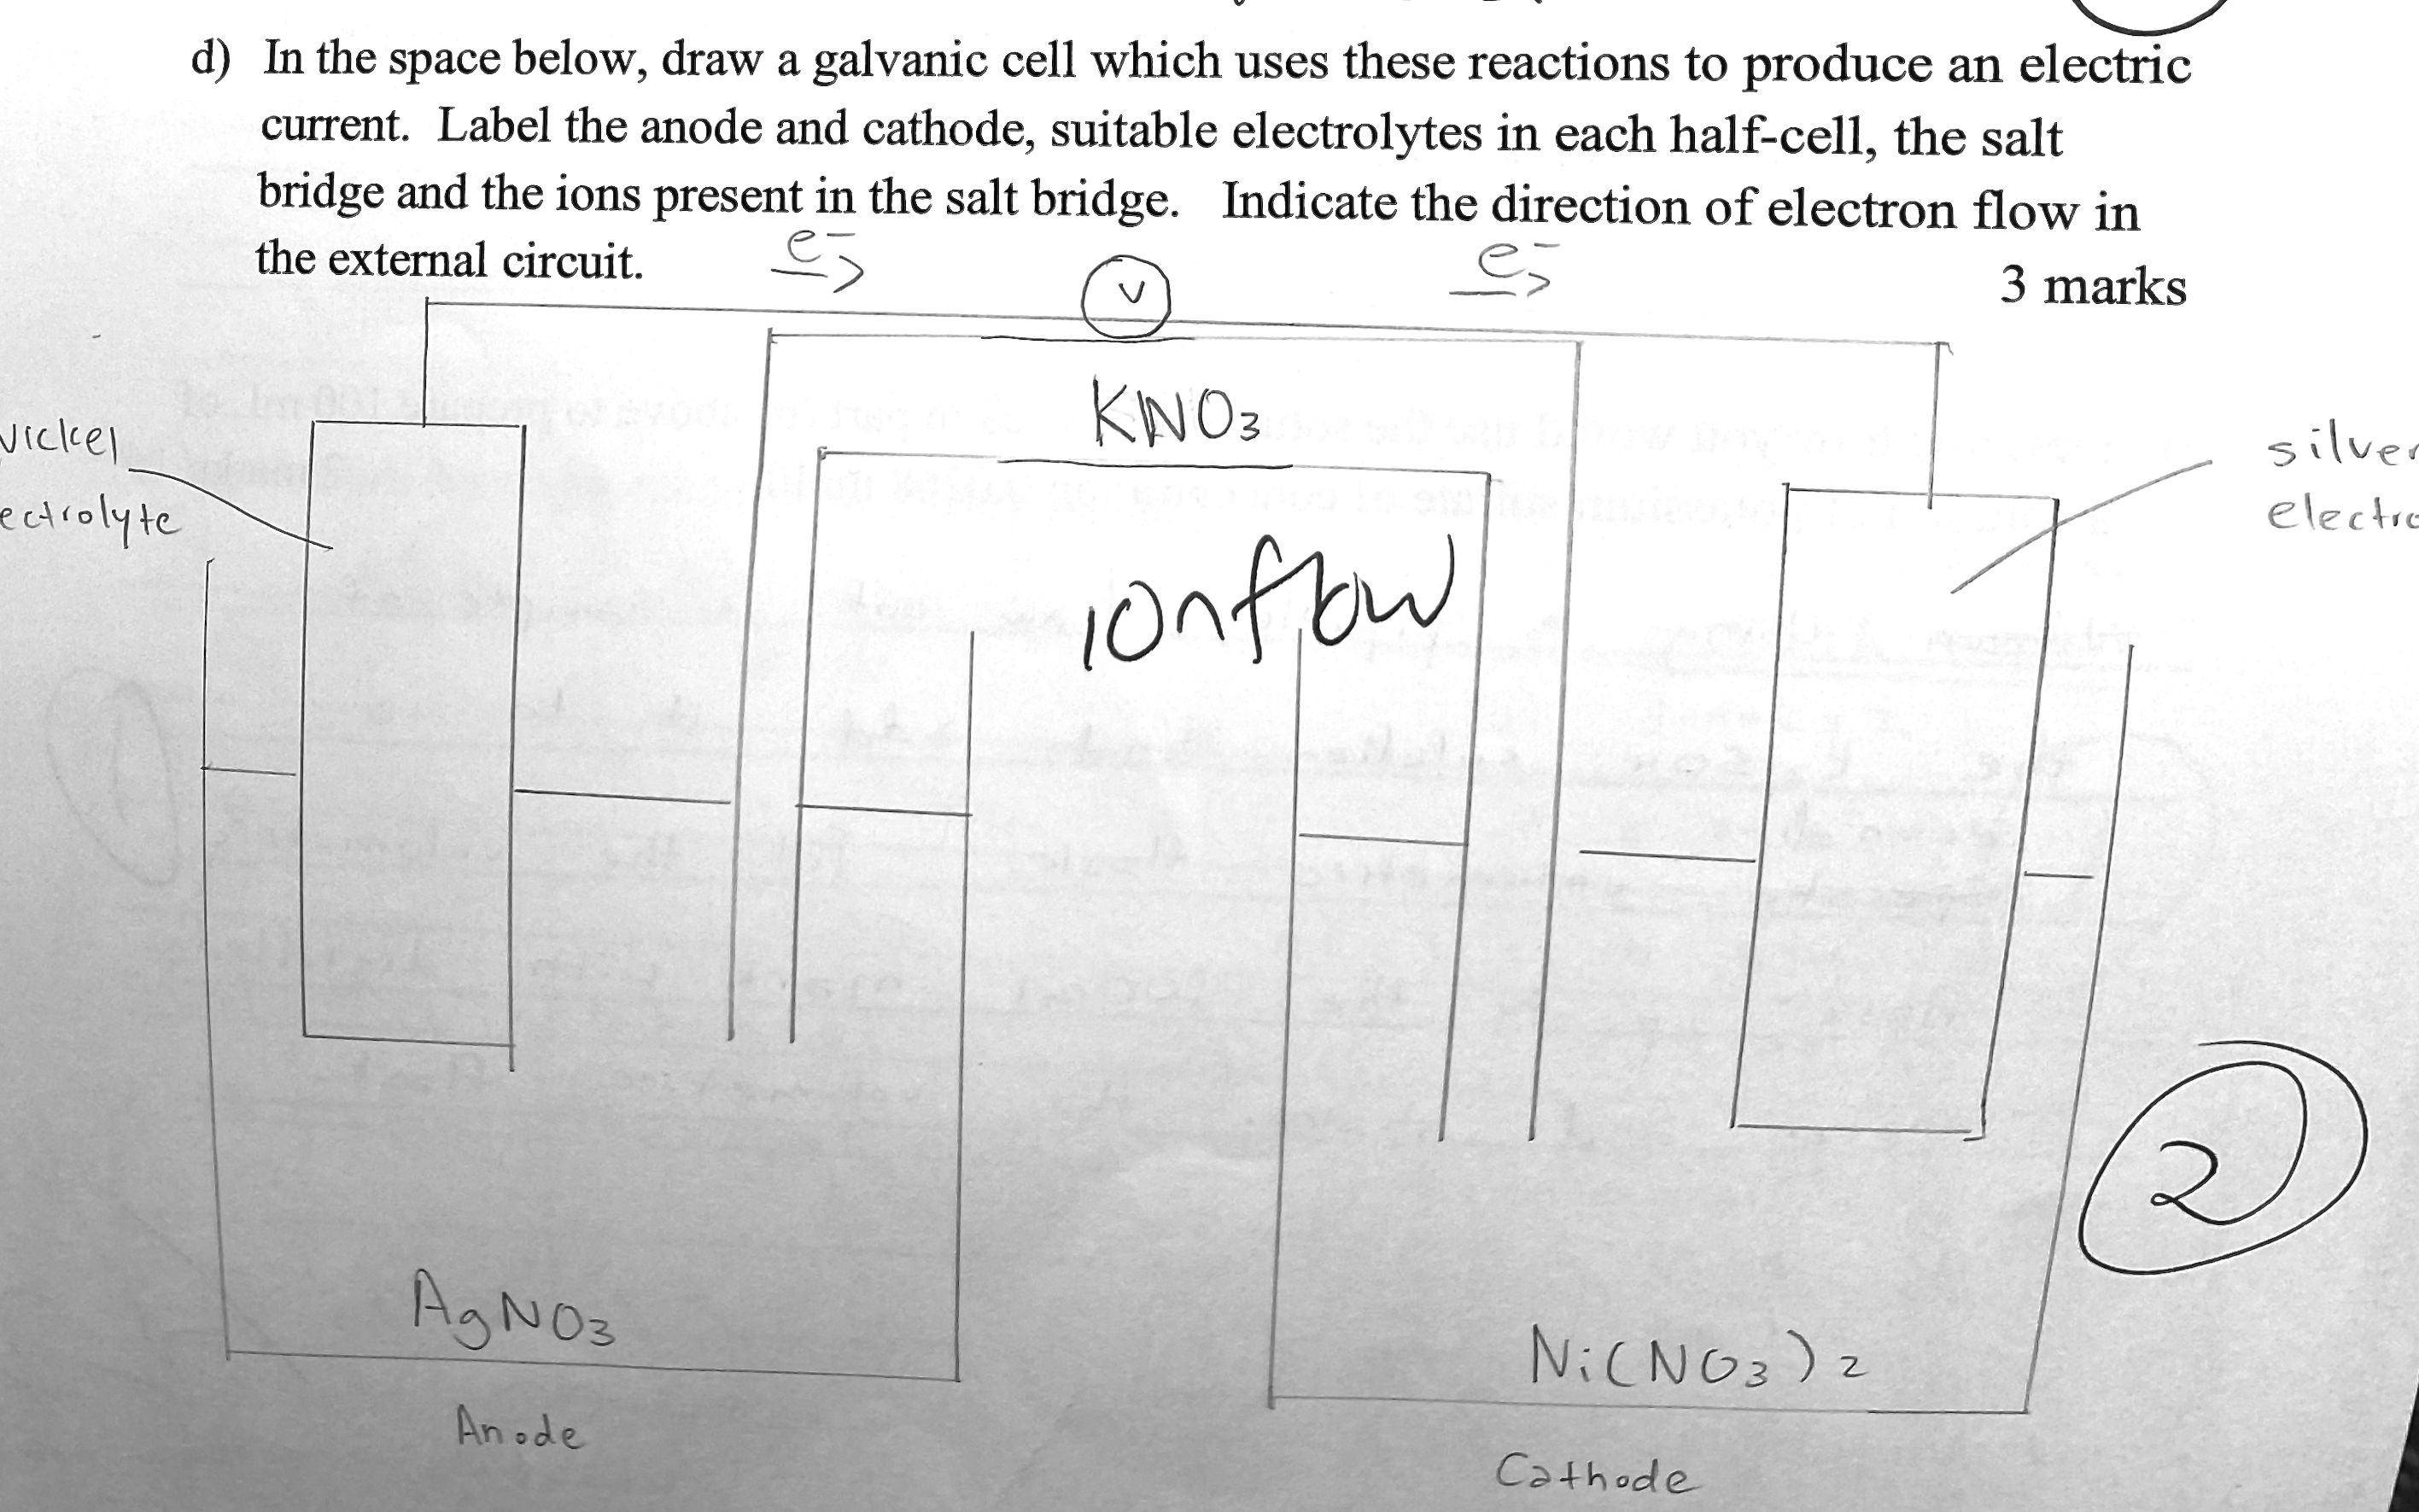 d) In the space below, draw a galvanic cell which uses these reactions to produce an electric
current. Label the anode and cathode, suitable electrolytes in each half-cell, the salt
bridge and the ions present in the salt bridge. Indicate the direction of electron flow in
the external circuit.
e⁻ e⁻
V
3 marks
KNO₃
ectrolyte
ionflow
AgNO₃
Ni(NO₃)₂
2
Anode
Cathode